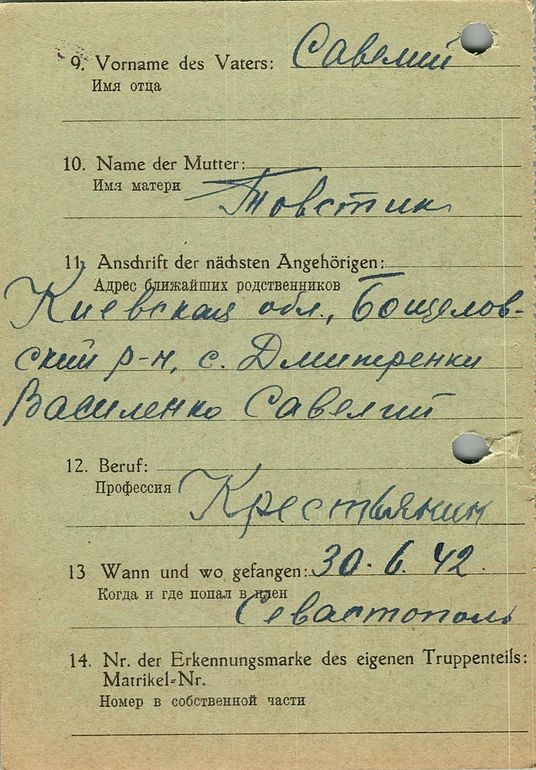 9. Vorname des Vaters: Савелий
Имя отца
10. Name der Mutter:
Имя матери Товстик
11. Anschrift der nächsten Angehörigen:
Адрес ближайших родственников
Киевская обл., Бощелов-
ский р-н, с. Дмитренки
Василенко Савелий
12. Beruf:
Профессия Крестьянин
13 Wann und wo gefangen: 30.6.42.
Когда и где попал в плен
Севастополь
14. Nr. der Erkennungsmarke des eigenen Truppenteils:
Matrikel-Nr.
Номер в собственной части